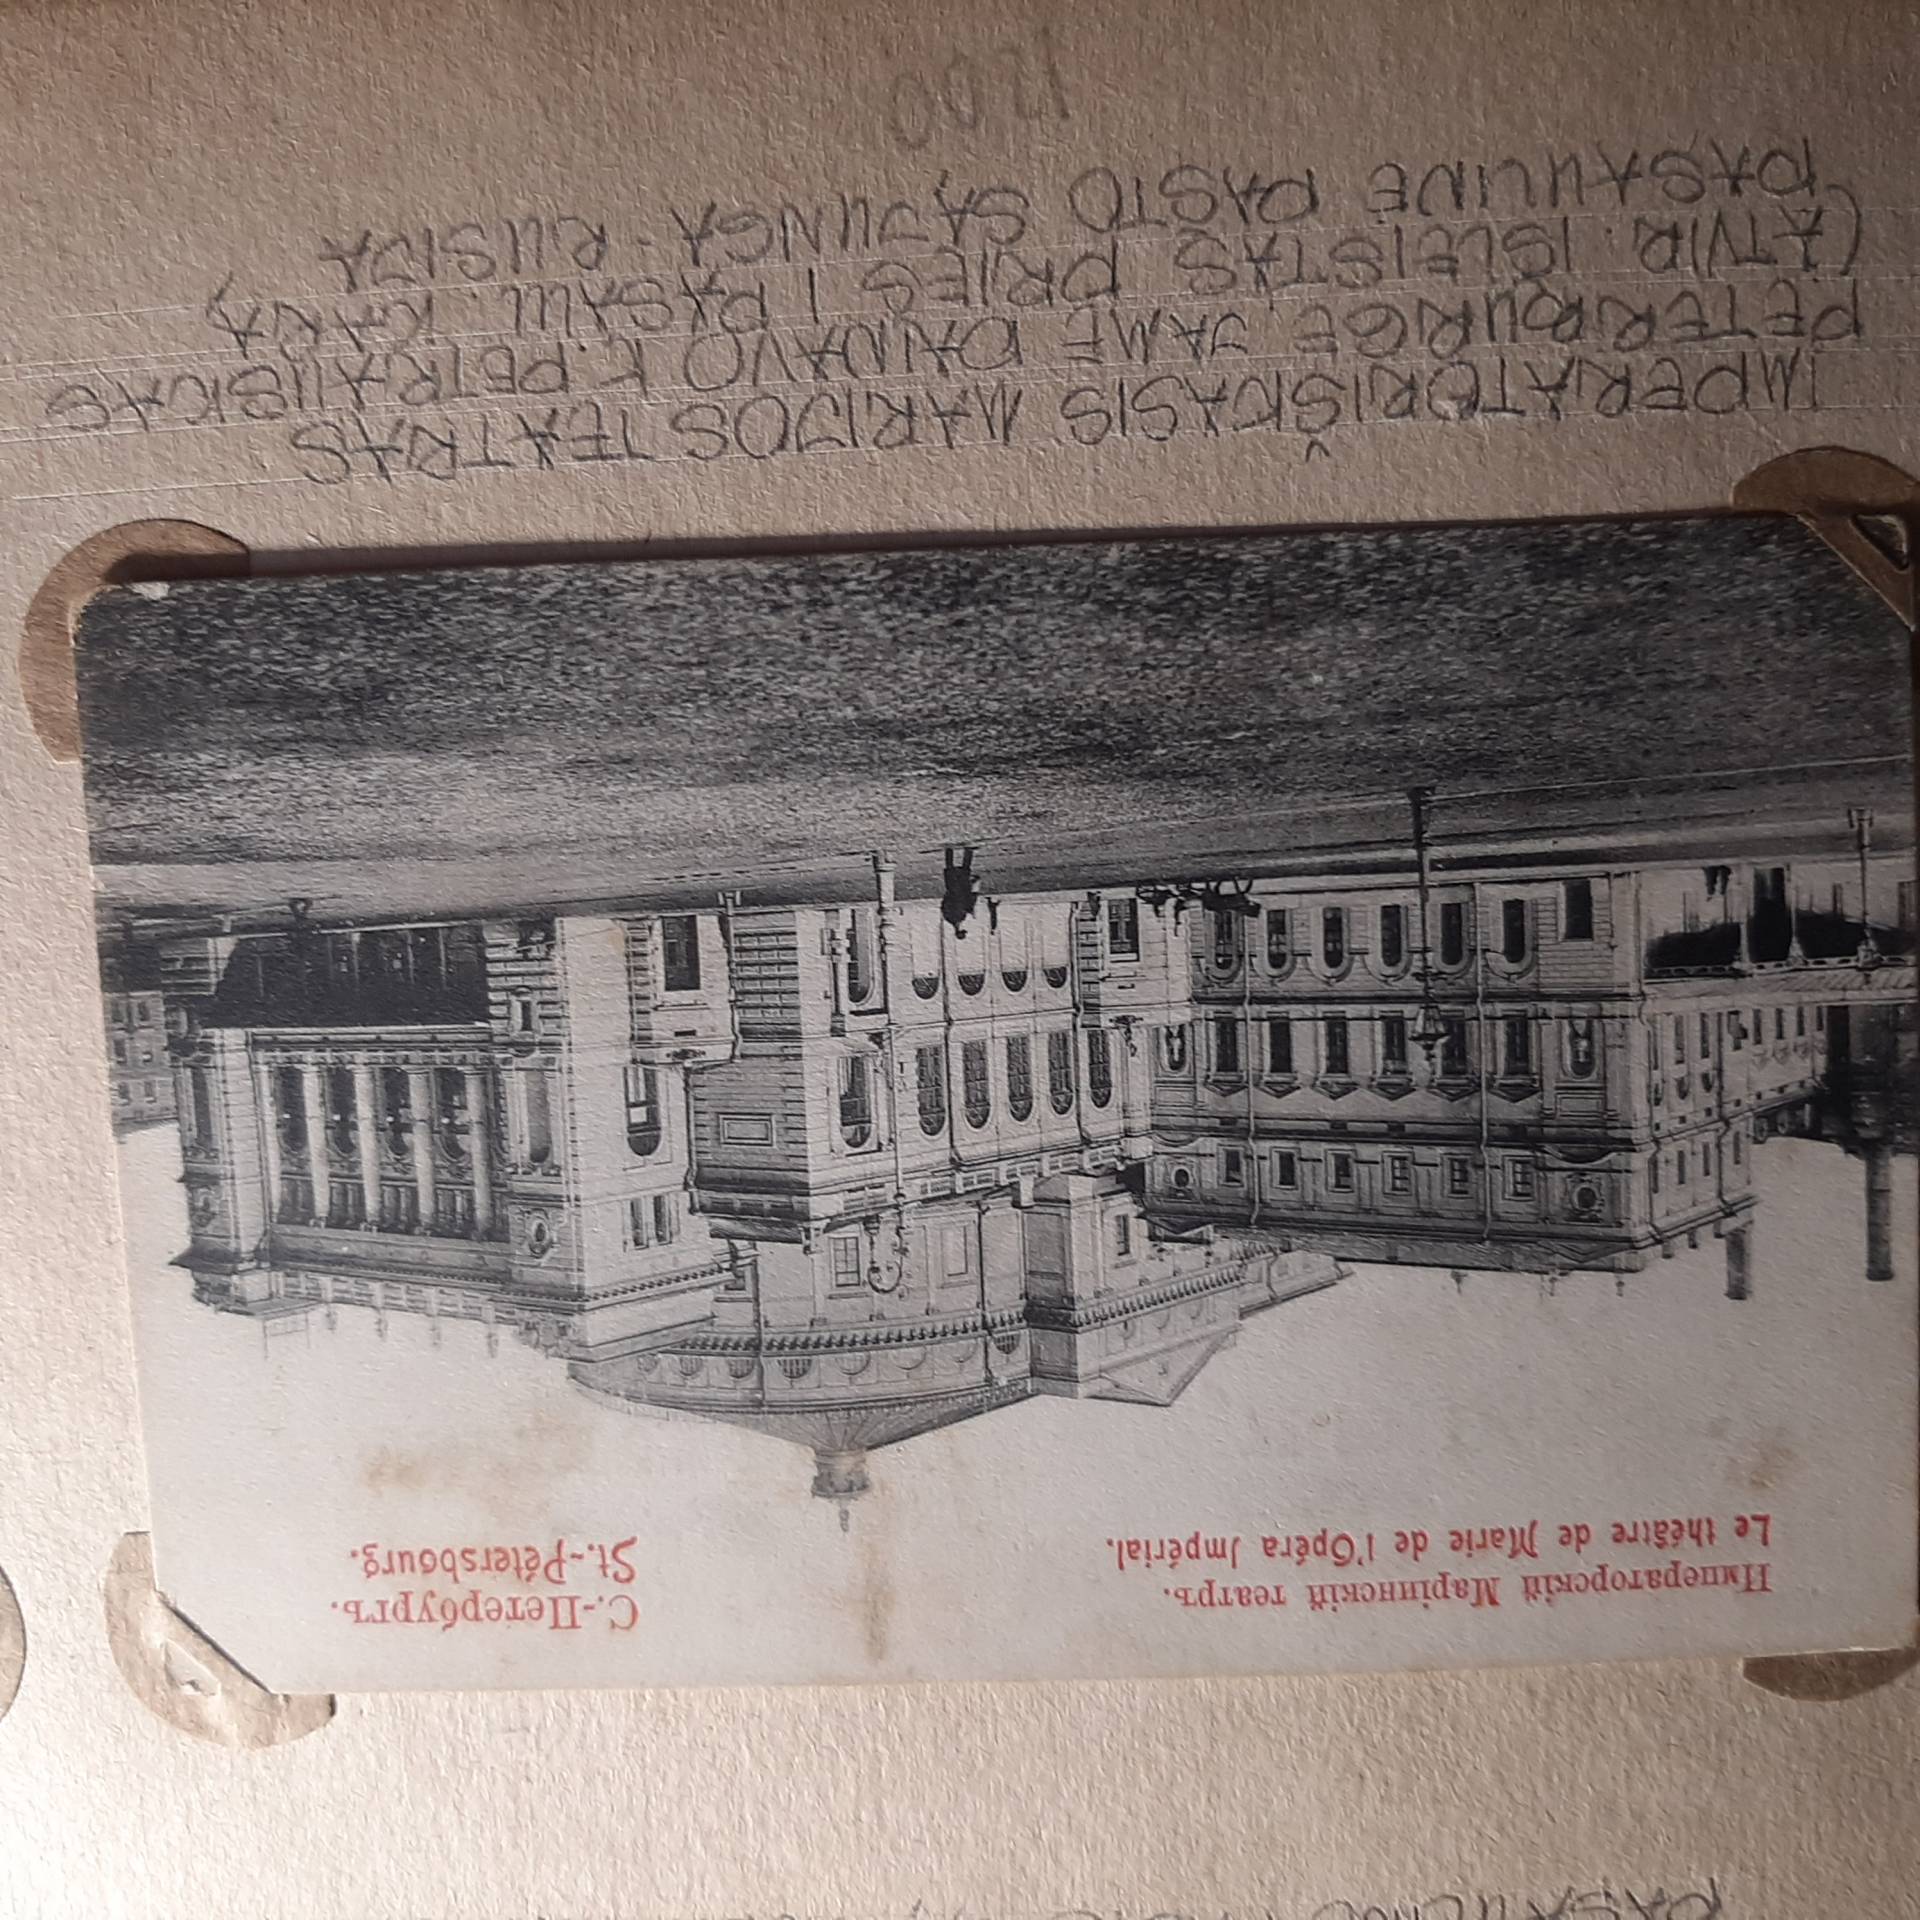 Императорскій Маріинскій театръ.
Le théâtre de Marie de l'Opéra Impérial.
С.-Петербургъ.
St.-Pétersbourg.
IMPERATORIŠKASIS MARIJOS TEATRAS
PETERBURGE, JAME DAINAVO K. PETRAUSKAS
(ATVIR. IŠLEISTAS PRIEŠ I PASAUL. KARĄ)
PASAULINĖ PAŠTO SĄJUNGA - RUSIJA
1200